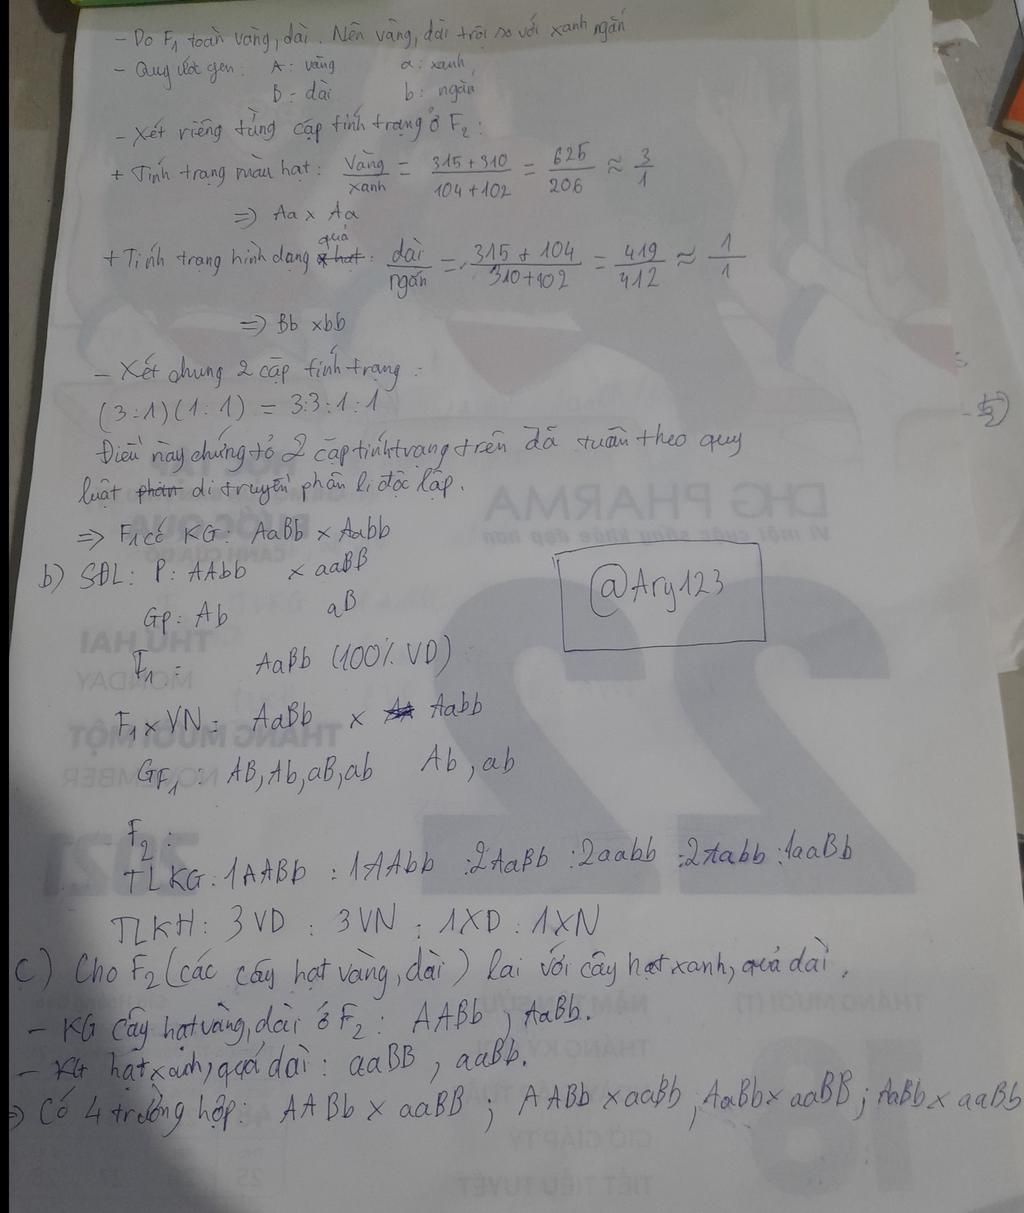 - Do F1 toàn vàng, dài. Nên vàng, dài trội so với xanh ngắn
- Quy ước gen: A: vàng a: xanh
B: dài b: ngắn
- Xét riêng từng cặp tính trạng ở F2:
+ Tính trạng màu hạt: Vàng/xanh = 315+310/104+102 = 625/206 ≈ 3/1
=> Aa x Aa
+ Tính trạng hình dạng quả: dài/ngắn = 315+104/310+102 = 419/412 ≈ 1/1
=> Bb x bb
- Xét chung 2 cặp tính trạng:
(3:1)(1:1) = 3:3:1:1
Điều này chứng tỏ 2 cặp tính trạng trên đã tuân theo quy
luật di truyền phân li độc lập.
=> F1 có KG: AaBb x Aabb
b) SĐL: P: AAbb x aaBB
Gp: Ab aB
F1: AaBb (100% VD)
F1 x VN: AaBb x Aabb
GF1: AB, Ab, aB, ab Ab, ab
F2:
TLKG: 1AABb : 1AAbb : 2AaBb : 2aabb : 2Aabb : 1aaBb
TLKH: 3VD : 3VN : 1XD : 1XN
c) Cho F2 (các cây hạt vàng, dài) lai với cây hạt xanh, quả dài.
- KG cây hạt vàng, dài ở F2: AABb, AaBb.
- KG hạt xanh, quả dài: aaBB, aaBb.
=> Có 4 trường hợp: AABb x aaBB; AABb x aaBb; AaBb x aaBB; AaBb x aaBb
@Ary123
DHG PHARMA
Vì một cuộc sống khỏe đẹp hơn
22
THỨ HAI
MONDAY
THÁNG MƯỜI MỘT
NOVEMBER
2021
THÁNG MƯỜI (T)
18
TIẾT TIỂU TUYẾT
25